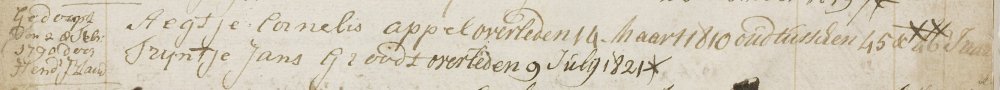 Gedoopt
Den 28 Feb:
1790 door
Hend:
Aegtje Cornelis appel overleden 14 Maart 1810 oud tusschen 45 & 46 Jaar
Trijntje Jans Groodt overleden 9 July 1821 X